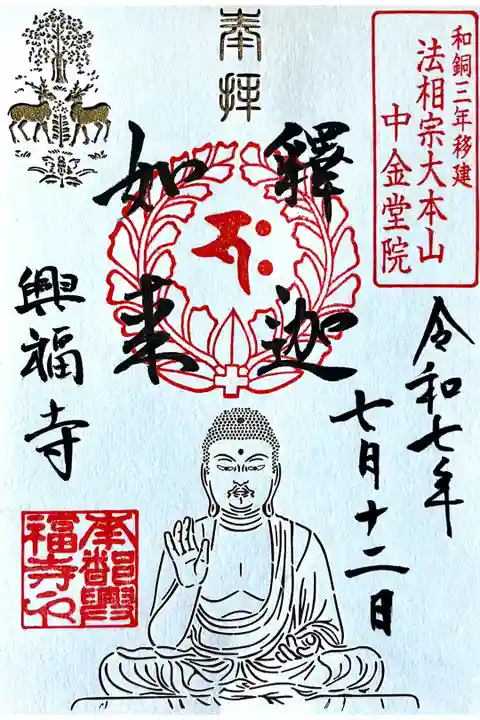 和銅三年移建
法相宗大本山
中金堂院
奉拝
釋迦
如来
令和七年
七月十二日
興福寺
南都興
福寺印